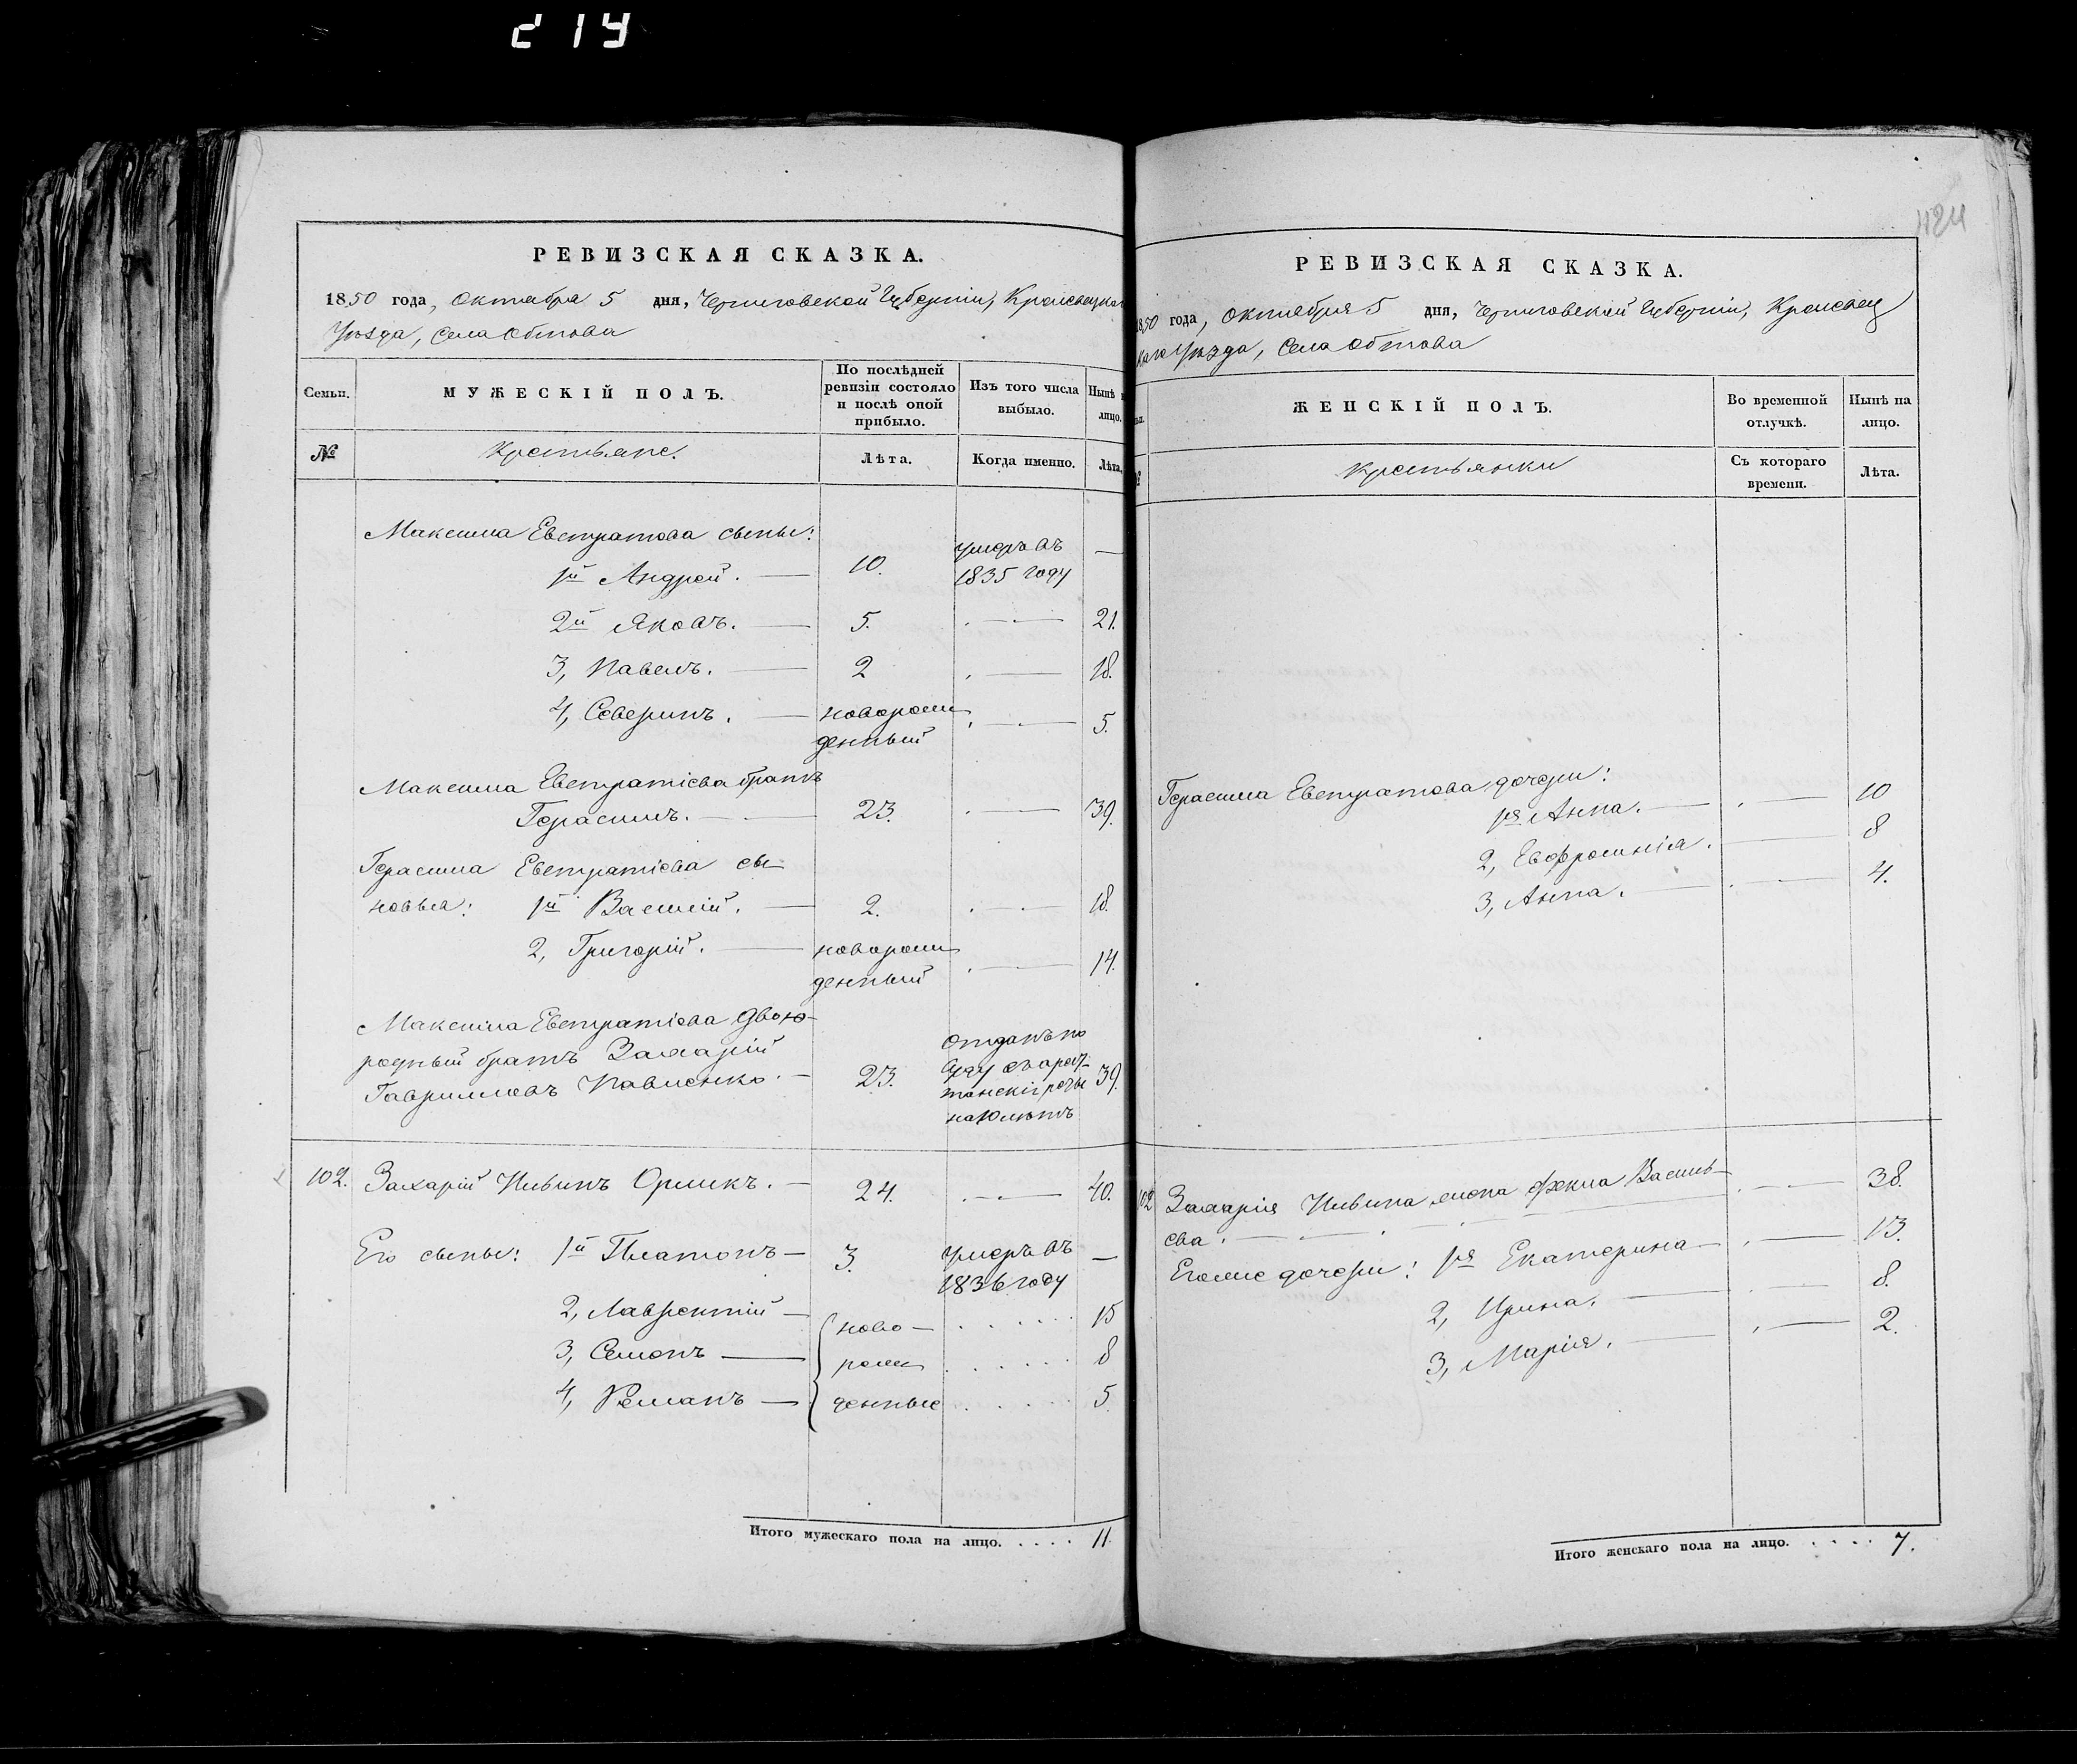 219
РЕВИЗСКАЯ СКАЗКА.
1850 года, Октября 5 дня, Черниговской Губернiи, Кролевецкаго
Уѣзда, Села Обтова
Семьи.
МУЖЕСКIЙ ПОЛЪ.
По послѣдней ревизiи состояло и послѣ оной прибыло.
Изъ того числа выбыло.
Нынѣ на лицо.
№
Крестьяне.
Лѣта.
Когда именно.
Лѣта.
Максима Евстратова сыны:
1й Андрей. — 10. умеръ въ 1835 году —
2й Яковъ. — 5. — 21.
3, Павелъ. — 2 — 18.
4, Северинъ. — новорожденный — 5.
Максима Евстратiева братъ
Герасимъ. — 23. — 39.
Герасима Евстратiева сы
новья: 1й Василiй. — 2. — 18.
2, Григорiй. — новорожденный — 14.
Максима Евстратiева двою-
родный братъ Захарiй
Гавриловъ Павленко. — 23. отданъ по
39.
102. Захарiй Ивлинъ Орликъ. — 24. — 40.
Его сыны: 1й Платонъ — 3. умеръ въ 1836 году —
2, Лаврентiй — ново- 15
3, Семенъ — рож 8
4, Романъ — денные 5
Итого мужескаго пола на лицо. . . . . 11.
424
РЕВИЗСКАЯ СКАЗКА.
1850 года, Октября 5 дня, Черниговской Губернiи, Кролевец
каго Уѣзда, Села Обтова
ЖЕНСКIЙ ПОЛЪ.
Во временной отлучкѣ.
Нынѣ на лицо.
Крестьянки
Съ котораго времени.
Лѣта.
Герасима Евстратова дочери:
1я Анна. — 10
2, Евфросинiя. — 8
3, Анна. — 4.
102 Захарiя Ивлина жена Фекла Василь-
ева. — 38.
Его же дочери: 1я Екатерина — 13.
2, Ирина. — 8.
3, Марiя. — 2.
Итого женскаго пола на лицо. . . . . 7.